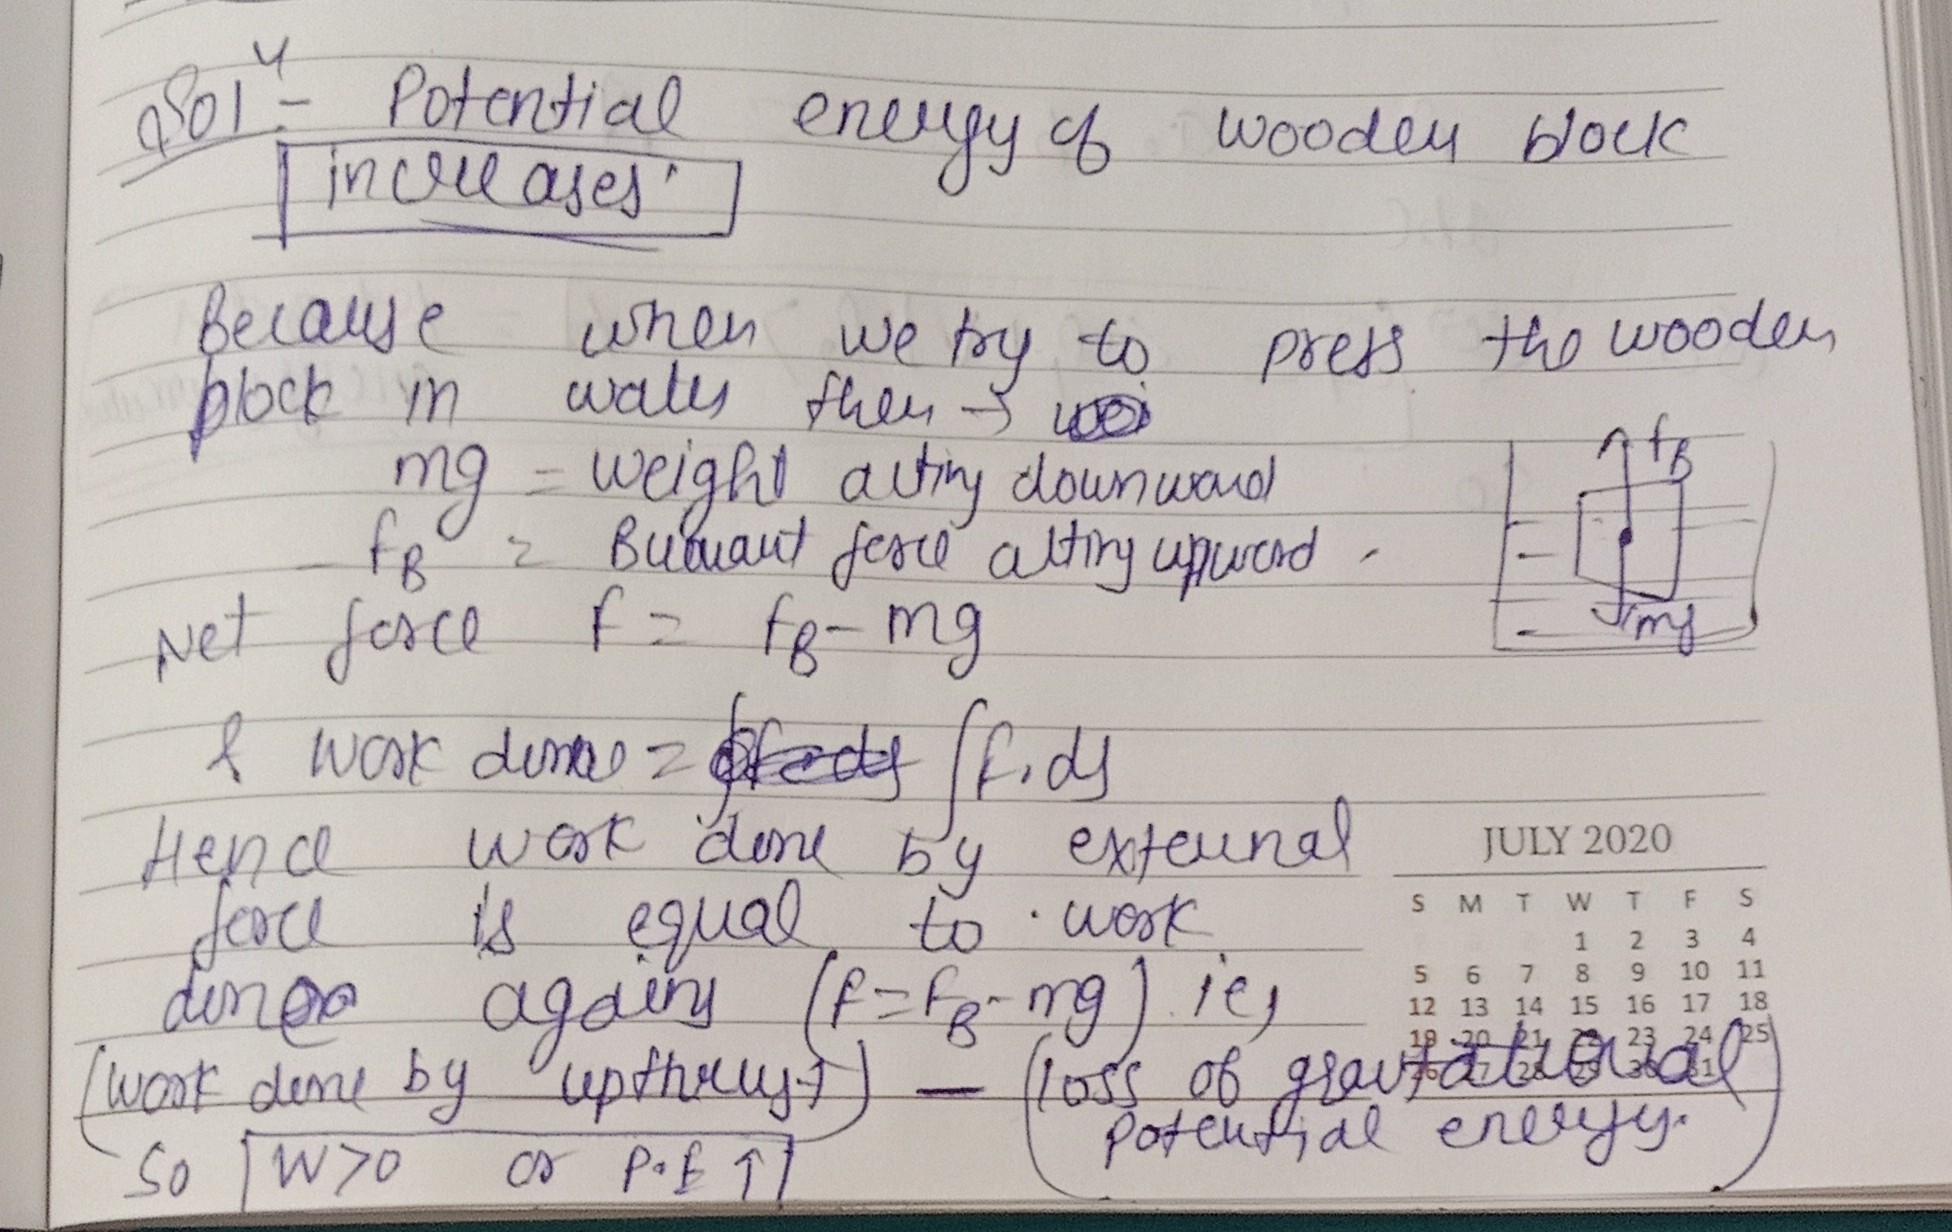 Solⁿ - Potential energy of wooden block
increases.
Because when we try to press the wooden
block in water then →
mg = weight acting downward
fB = Buouant force acting upward.
Net force f = fB - mg
fB
mg
& work done = ∫f.ds
Hence work done by external
force is equal to work
done (f = fB - mg) ie,
(work done by upthrust) — (loss of gravitational
potential energy.)
So W>0 or P.E ↑
JULY 2020
S M T W T F S
1 2 3 4
5 6 7 8 9 10 11
12 13 14 15 16 17 18
19 20 21 22 23 24 25
26 27 28 29 30 31